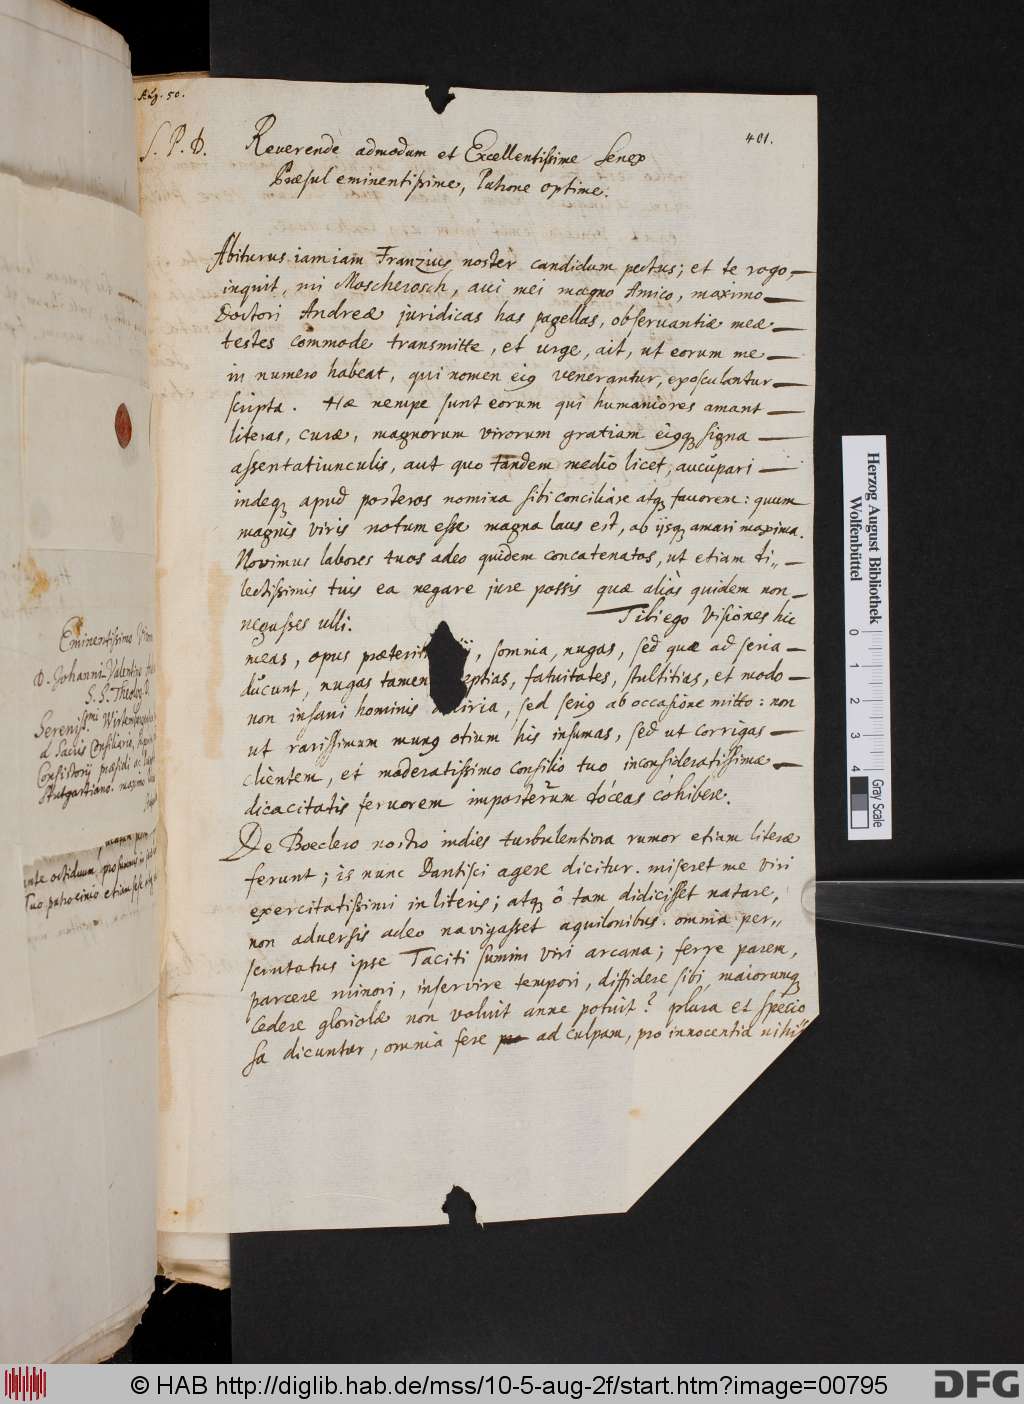 Aug. 50.
401.
S. P. D. Reverende admodum et Excellentissime Senex
Præsul eminentissime, Patrone optime.
Abiturus iamiam Franzius noster candidum pectus; et te rogo,
inquit, mi Moscherosch, avi mei magno Amico, maximo
Doctori Andreæ juridicas has pagellas, observantiæ meæ
testes commode transmitte, et urge, ait, ut eorum me
in numero habeat, qui nomen eius venerantur, exosculantur
scripta. Hæ nempe sunt eorum qui humaniores amant
literas, curæ, magnorum virorum gratiam eiusq signa
assentatiunculis, aut quo tandem medio licet, aucupari
indeq apud posteros nomina sibi conciliare atq favorem: quum
magnis viris notum esse magna laus est, ab ijsq amari maxima.
Novimus labores tuos adeo quidem concatenatos, ut etiam di„
lectissimis tuis ea negare jure possis quæ aliàs quidem non
negasses ulli. Tibi ego Visiones hic
meas, opus præterit ij, somnia, nugas, sed quæ ad seria
ducunt, nugas tamen eptias, fatuitates, stultitias, et modo
non insani hominis iria, sed serius ab occasione mitto: non
ut rarissimum munus otium his insumas, sed ut corrigas
clientem, et moderatissimo consilio tuo inconsideratissimæ
dicacitatis fervorem imposterum doceas cohibere.
De Boeclero nostro indies turbulentiora rumor etiam literæ
ferunt; is nunc Dantisci agere dicitur. miseret me viri
exercitatissimi in literis; atq ô tam didicisset natare,
non adversis adeo navigasset aquilonibus. omnia per„
scrutatus ipse Taciti summi viri arcana; ferre parem,
parcere minori, inservire tempori, diffidere sibi, maiorumq
cedere gloriolæ non voluit anne potuit? plura et specio
sa dicuntur, omnia fere ad culpam, pro innocentia nihil
Eminentissimo Viro
D. Johanni Valentino
S. S. Theolog. D.
Sereniss.mi Wirtemberg
à Sacris Consiliis,
Consistorij præsidi
Stutgartiano. maximo
Tuo patrocinio etiam
Herzog August Bibliothek
Wolfenbüttel
0 1 2 3 4
Gray Scale
© HAB http://diglib.hab.de/mss/10-5-aug-2f/start.htm?image=00795
DFG